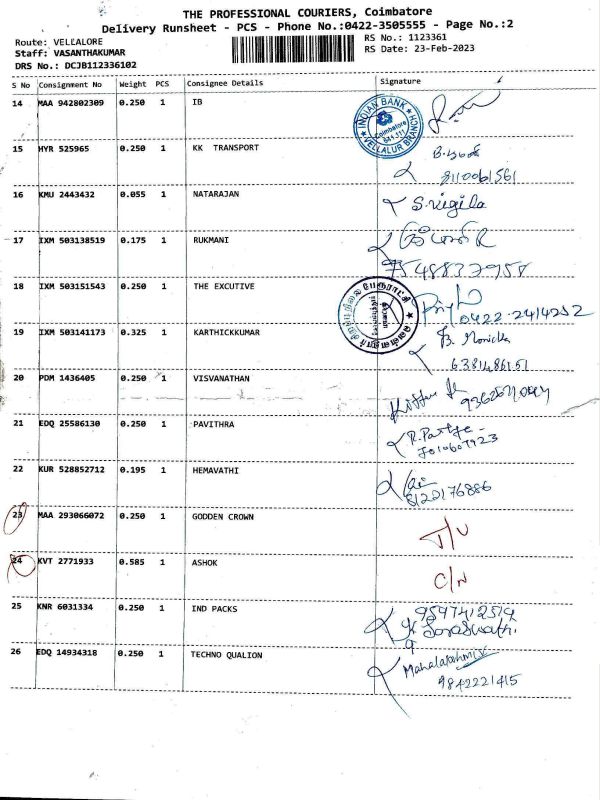 THE PROFESSIONAL COURIERS, Coimbatore
Delivery Runsheet - PCS - Phone No.:0422-3505555 - Page No.:2
Route: VELLALORE
RS No.: 1123361
Staff: VASANTHAKUMAR
RS Date: 23-Feb-2023
DRS No.: DCJB112336102
S No Consignment No Weight PCS Consignee Details Signature
14 MAA 942802309 0.250 1 IB
INDIAN BANK
Coimbatore
641 111
VELLALUR BRANCH
15 HYR 525965 0.250 1 KK TRANSPORT
8110061561
16 KMU 2443432 0.055 1 NATARAJAN S.Vigila
17 IXM 503138519 0.175 1 RUKMANI
18 IXM 503151543 0.250 1 THE EXCUTIVE
0422-2414252
19 IXM 503141173 0.325 1 KARTHICKKUMAR B. Monicka
6381486151
20 PDM 1436405 0.250 1 VISVANATHAN
21 EDQ 25586130 0.250 1 PAVITHRA
22 KUR 528852712 0.195 1 HEMAVATHI
8122176886
23 MAA 293066072 0.250 1 GODDEN CROWN
24 KVT 2771933 0.585 1 ASHOK C/N
25 KNR 6031334 0.250 1 IND PACKS
K Saraswathi
26 EDQ 14934318 0.250 1 TECHNO QUALION
9842221415